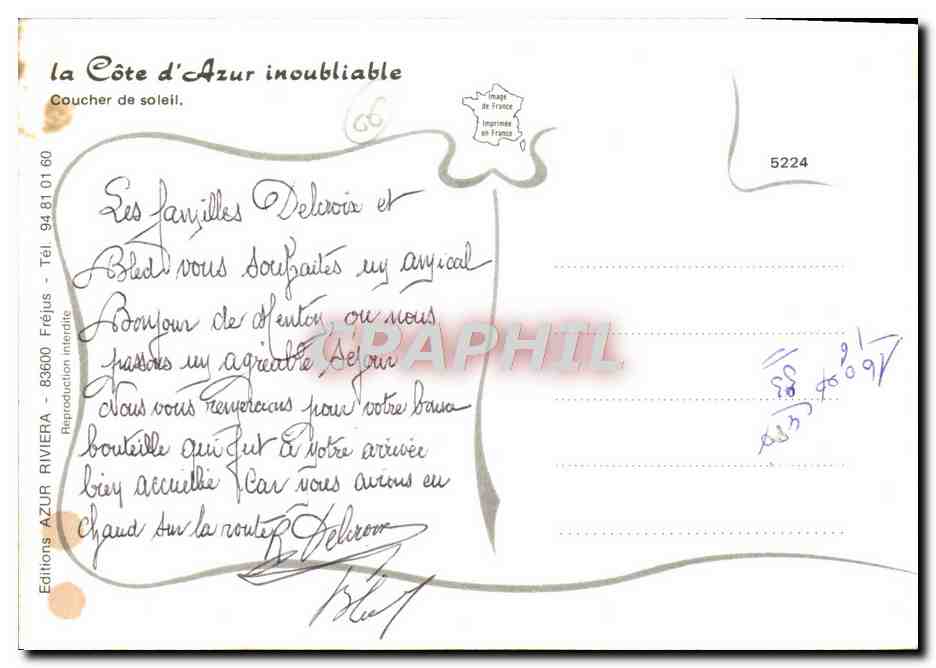 la Côte d'Azur inoubliable
Coucher de soleil.
06
Image
de France
Imprimée
en France
5224
Editions AZUR RIVIERA - 83600 Fréjus - Tél. 94 81 01 60
Reproduction interdite
Les familles Delcroix et
Bled vous souhaites un amical
Bonjour de Menton, ou nous
passons un agréable Séjour
Nous vous remercions pour votre bonne
bouteille qui fut à notre arrivée
bien accueillie Car nous avions eu
chaud sur la route Delcroix
Bled
CRAPHIL